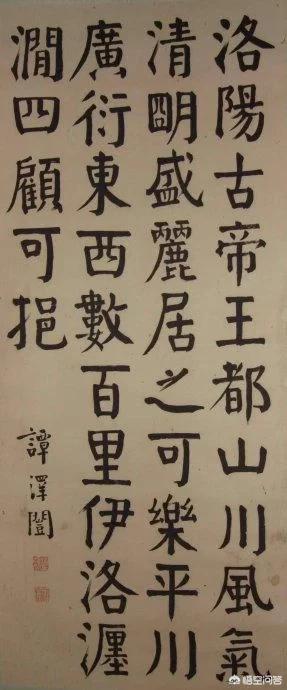 洛陽古帝王都山川風氣
清明盛麗居之可樂平川
廣衍東西數百里伊洛瀍
澗四顧可挹
譚澤闓
悟空问答